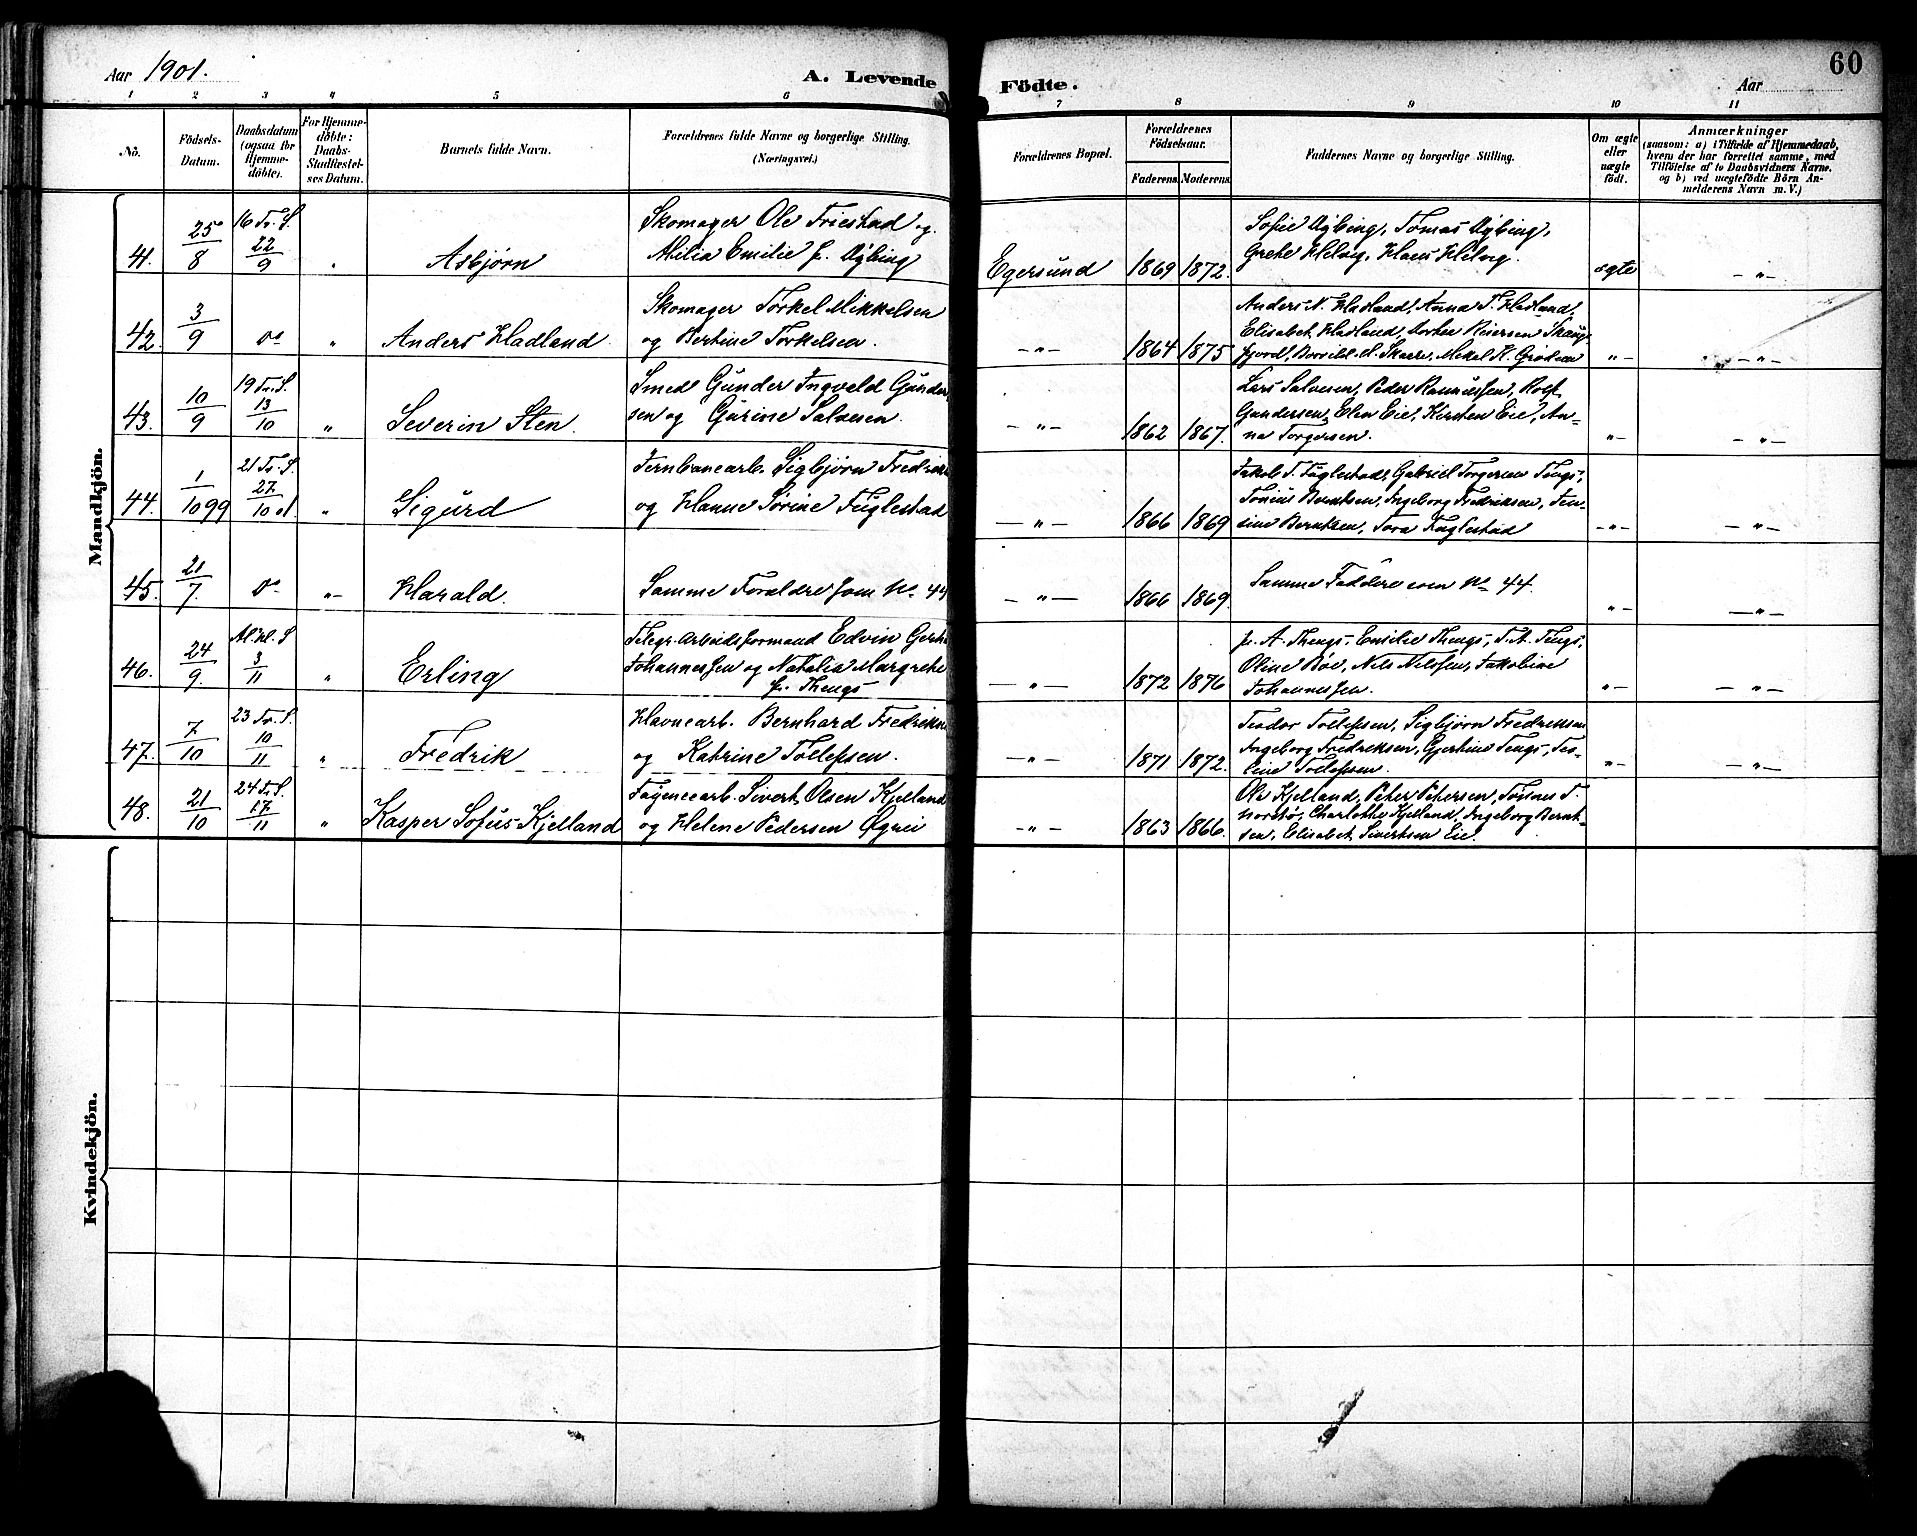 Aar 1901. A. Levende Födte. Aar 60
1 2 3 4 5 6 7 8 9 10 11
No. Födsels-Datum. Daabsdatum (ogsaa for Hjemmedöbte). For Hjemmedöbte: Daabs-Stadfæstelses Datum. Barnets fulde Navn. Forældrenes fulde Navne og borgerlige Stilling. (Næringsvei.) Forældrenes Bopæl. Forældrenes Födselsaar. Faderens. Moderens. Faddernes Navne og borgerlige Stilling. Om ægte eller uægte födt. Anmærkninger (saasom: a) i Tilfælde af Hjemmedaab, hvem der har forrettet samme, med Tilföielse af to Daabsvidners Navne. og b) ved uægtefödte Börn Anmelderens Navn m. V.)
Mandkjön.
41. 25/8 16 Tr. S. 22/9 " Asbjørn
Skomager Ole Friestad og
Milia Emilie f. Agbing
Egersund 1869 1872.
Sofie Agbing, Tomas Agbing,
Grete Helvig, Hans Helvig.
ægte – " –
42. 3/9 do " Anders Hadland.
Skomager Torkel Mikkelsen
og Bertine Torkelsen.
– " – 1864 1875
Anders N. Hadland, Anna T. Hadland,
Elisabet Hadland, Dorthe Reiersen
fjord, Borvild H. Skarre, Mekal K.
" – – " –
43. 10/9 19 Tr. S. 13/10 " Severin Sten.
Smed Gunder Ingvald Gunder-
sen og Gurine Salvesen.
– " – 1862 1867.
Lars Salvesen, Peder Rasmussen, Rolf
Gundersen, Elen Eie, Kirsten Eie, An-
na Torgersen.
" – – " –
44. 1/10 99 21 Tr. S. 27/10 01. " Sigurd
Jernbanearb. Sigbjørn Fredriks
og Hanne Sørine Fuglestad
– " – 1866 1869
Jakob T. Fuglestad, Gabriel Torgersen Tengs,
Tonius Berntsen, Ingeborg Fredriksen, Jen-
sine Berntsen, Tora Fuglestad
– " – – " –
45. 21/7. do " – Harald.
Samme Forældre som No 44
– " – 1866 1869.
Samme Faddere som No 44.
" – – " –
46. 24/9. Al. Hl. S. 3/11 " Erling
Telegr. Arbeidsformand Edvin Gerh.
Johannessen og Natalia Margrethe
f. Thengs
– " – 1872 1876
A. Thengs, Emilie Thengs, T. A. Tengs,
Oline Bøe, Nils Nilssen, Jakobine
Johannessen.
" – – " –
47. 7/10 23 Tr. S. 10/11 " Fredrik
Havnearb. Bernhard Fredriksen
og Katrine Tollefsen.
– " – 1871 1872.
Teodor Tollefsen, Sigbjørn Fredriksen
Ingeborg Fredriksen, Gjertine Tengs, Te-
line Tollefsen.
" – – " –
48. 21/10 24 Tr. S. 17/11 " Kasper Sofus Kjelland
Fayencearb. Sivert Olsen Kjelland
og Helene Pedersen Øgrei
– " – 1863 1866.
Ole Kjelland, Peter Petersen, Tønnes T.
Nordtø, Charlotte Kjelland, Ingeborg Bernt-
sen, Elisabet Sivertsen Eie.
Kvindekjön.